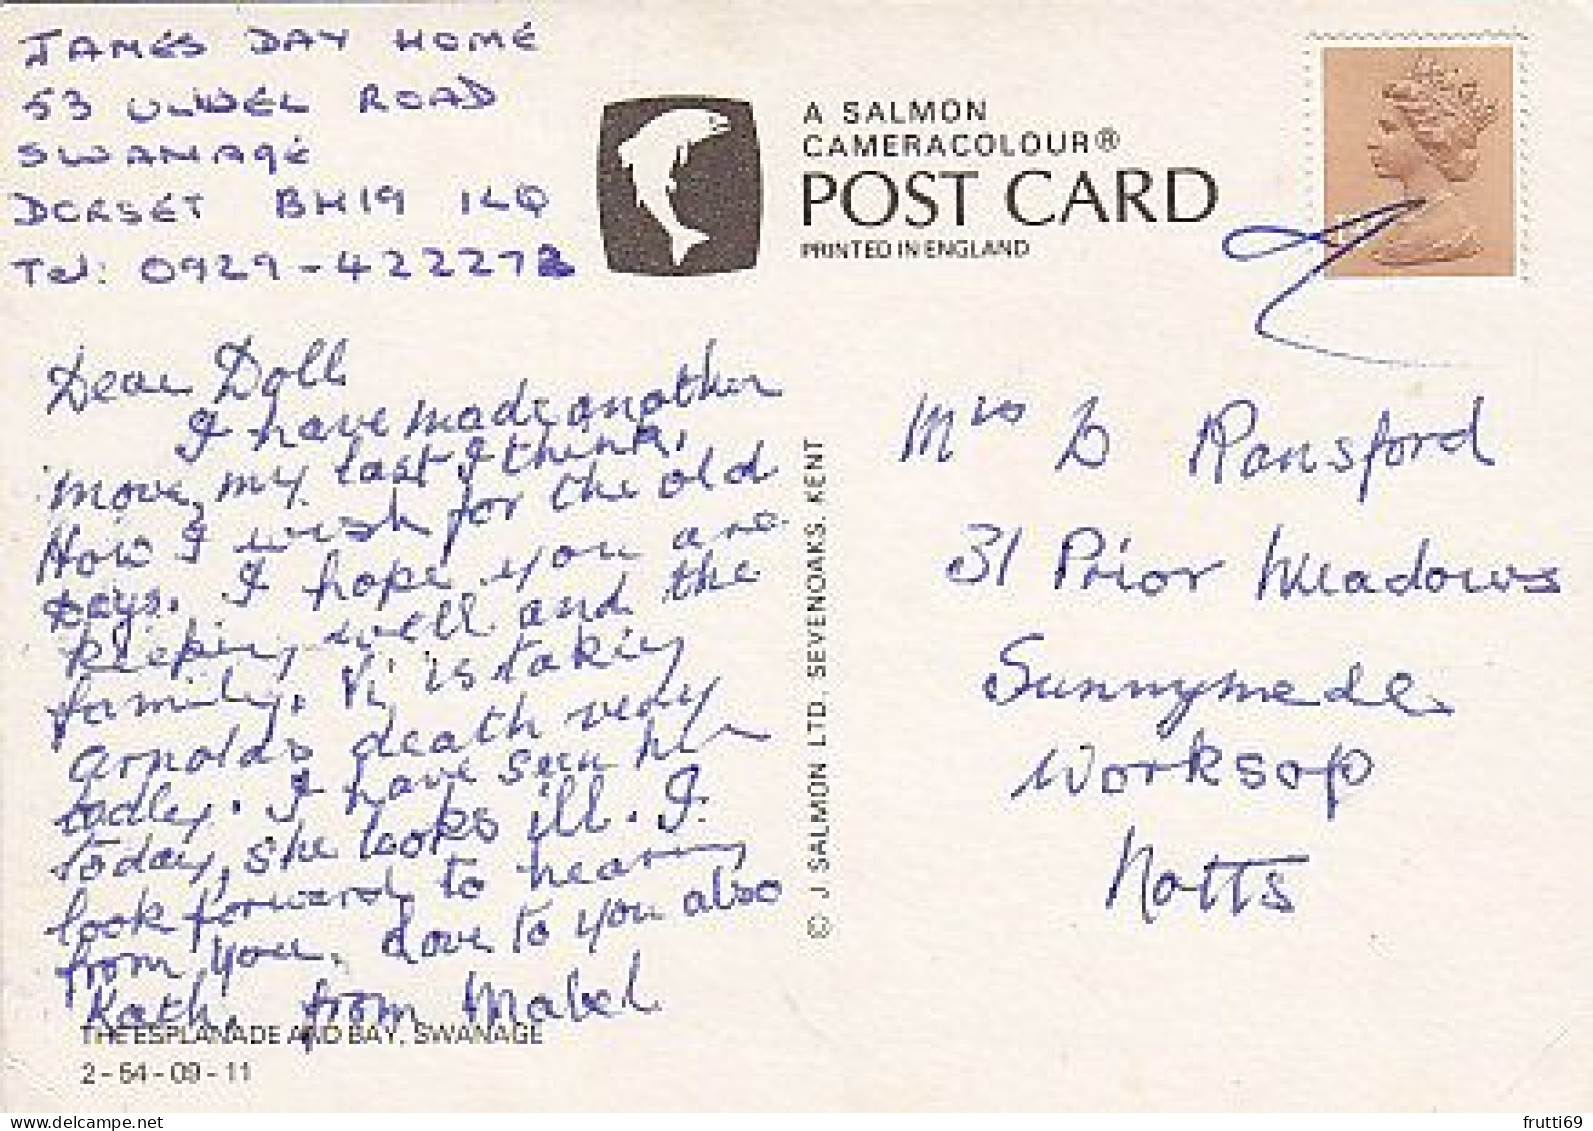 JAMES DAY HOME
53 ULWEL ROAD
SWANAGE
DORSET BH19 1LQ
Tel: 0929-422272
A SALMON
CAMERACOLOUR®
POST CARD
PRINTED IN ENGLAND
Dear Doll
I have made another
move, my last I think,
How I wish for the old
Days. I hope you are
keeping well and the
family. Vi is taking
Arnolds death very
badley. I have seen her
today, she looks ill. I
look forward to hearing
from you. Love to you also
Kath. from Mabel
© J SALMON LTD. SEVENOAKS. KENT
Mrs D Ransford
31 Prior Meadows
Sunnymede
Worksop
Notts
THE ESPLANADE AND BAY, SWANAGE
2-54-09-11
www.delcampe.net
frutti69